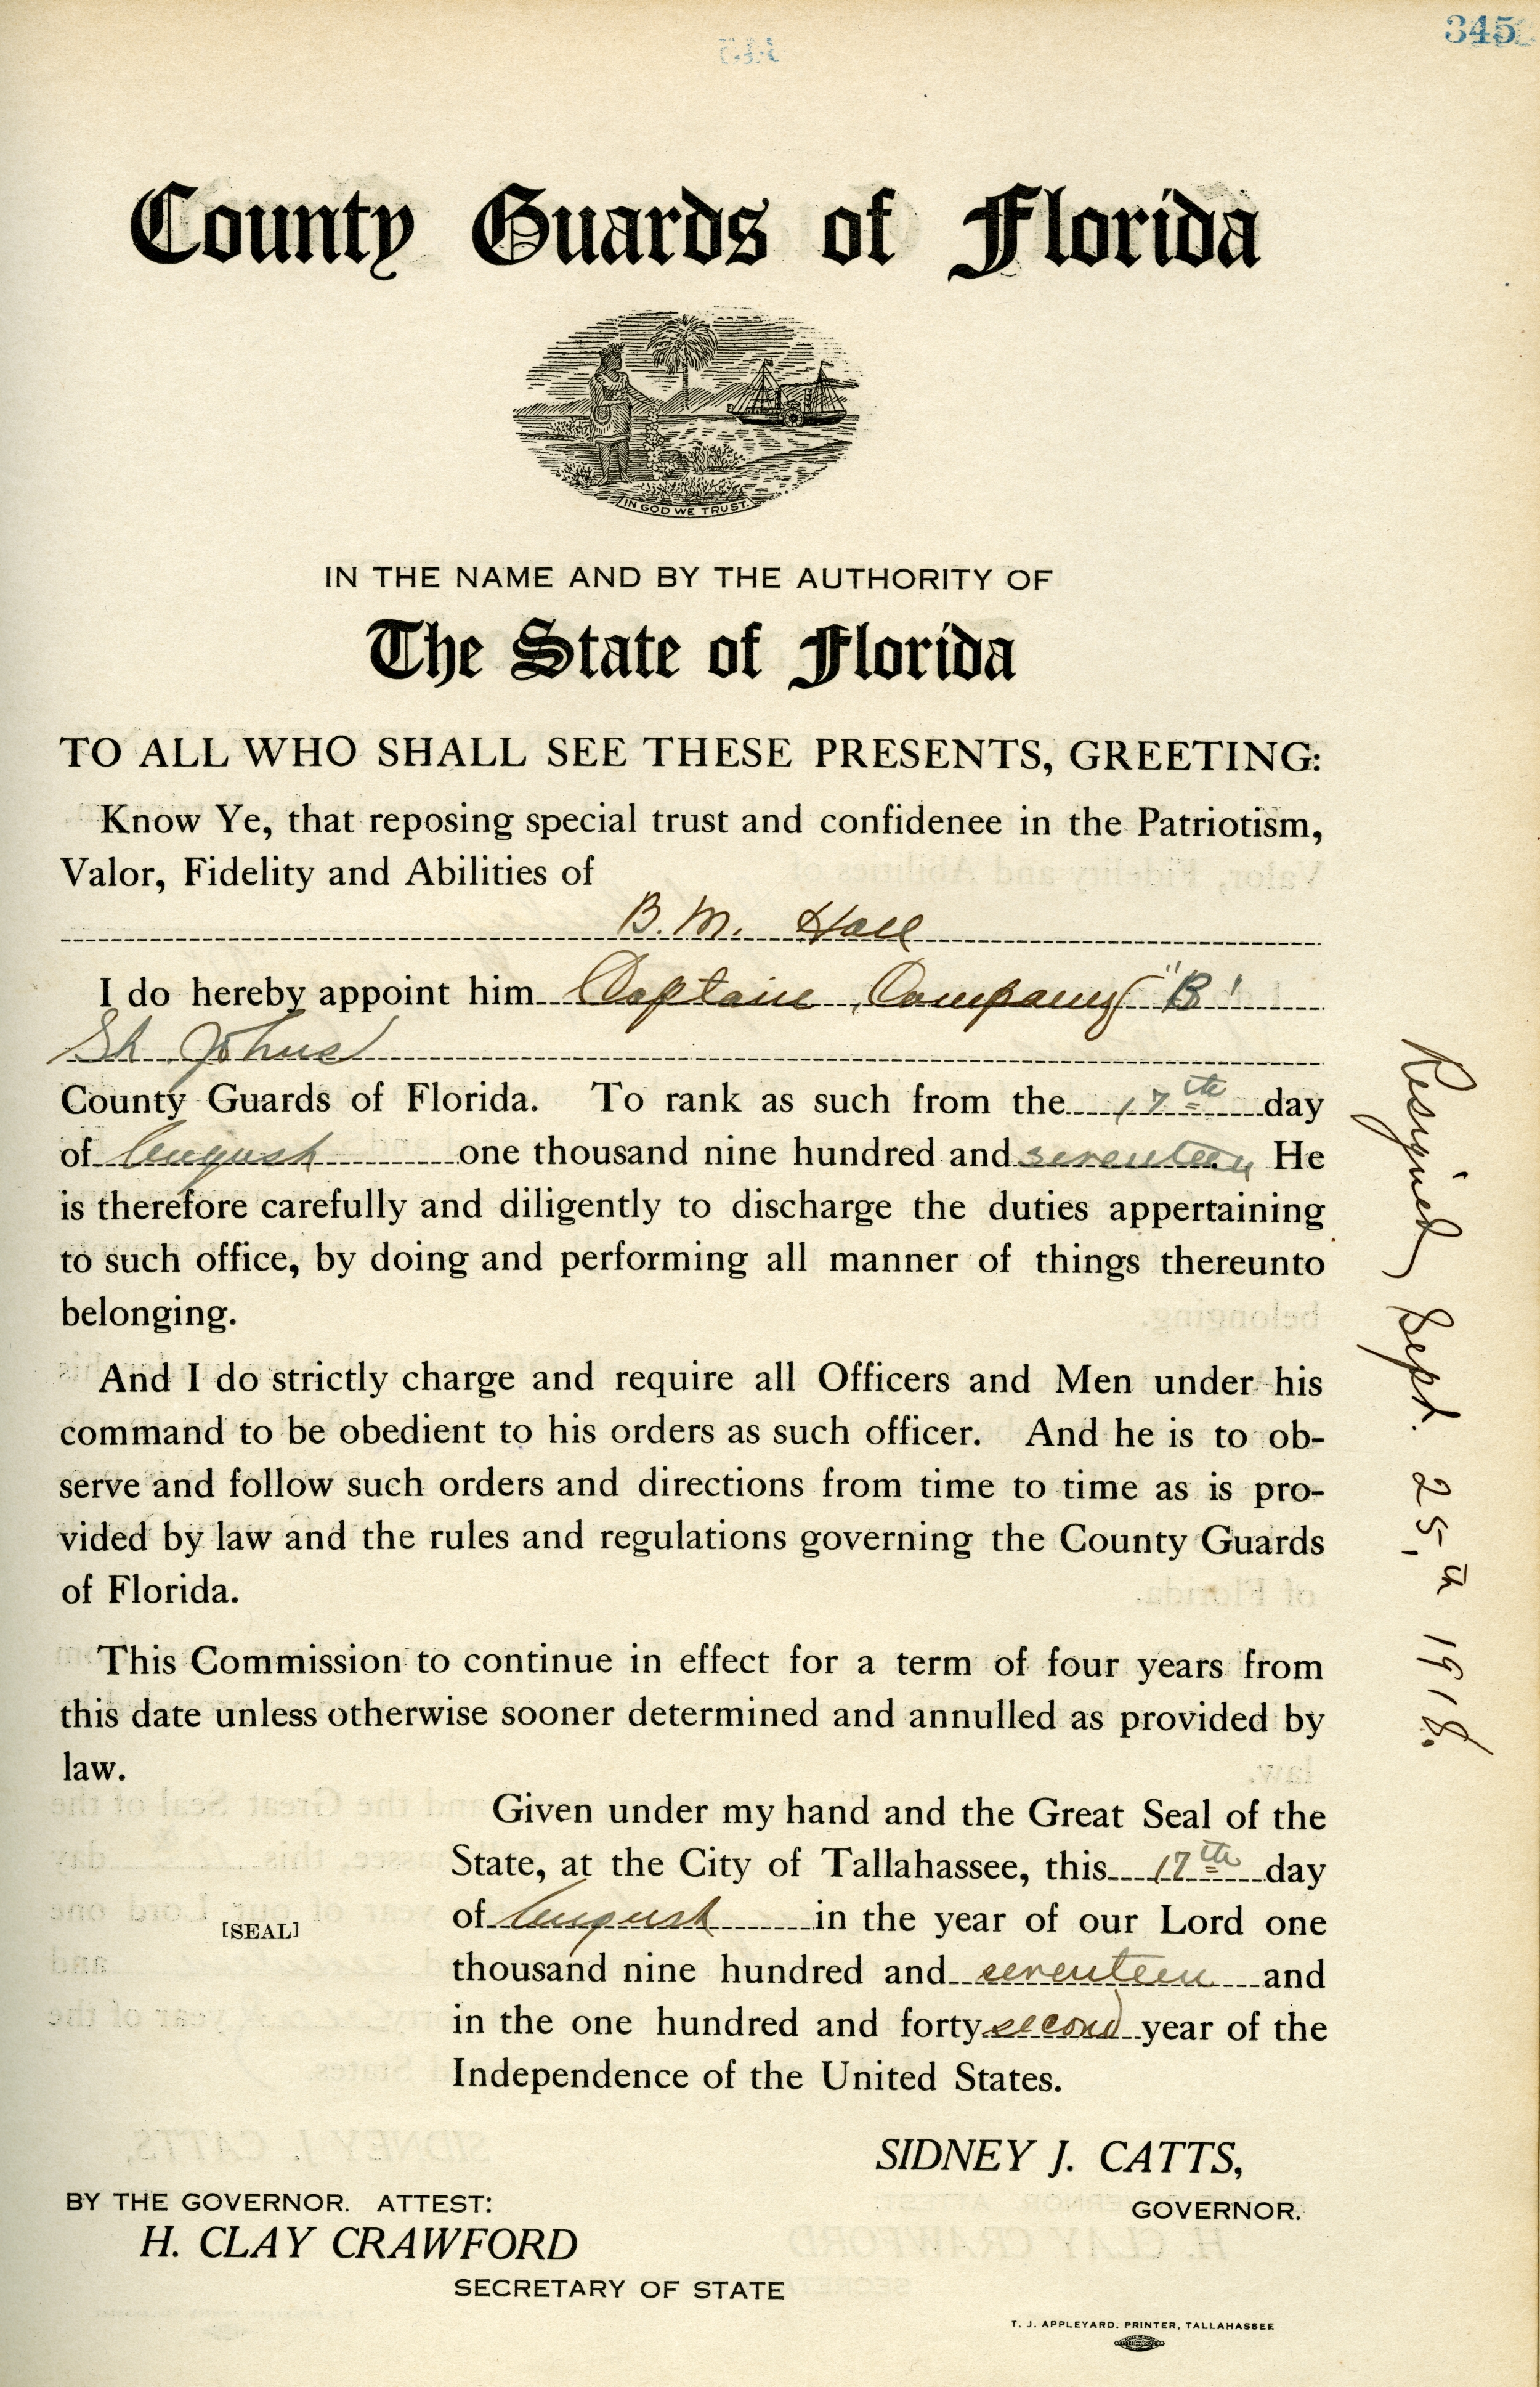 345
County Guards of Florida
IN GOD WE TRUST.
IN THE NAME AND BY THE AUTHORITY OF
The State of Florida
TO ALL WHO SHALL SEE THESE PRESENTS, GREETING:
Know Ye, that reposing special trust and confidenee in the Patriotism,
Valor, Fidelity and Abilities of
B. M. Hall
I do hereby appoint him Captain Company "B"
St. Johns
County Guards of Florida. To rank as such from the 17th day
of August one thousand nine hundred and seventeen He
is therefore carefully and diligently to discharge the duties appertaining
to such office, by doing and performing all manner of things thereunto
belonging.
And I do strictly charge and require all Officers and Men under his
command to be obedient to his orders as such officer. And he is to ob-
serve and follow such orders and directions from time to time as is pro-
vided by law and the rules and regulations governing the County Guards
of Florida.
This Commission to continue in effect for a term of four years from
this date unless otherwise sooner determined and annulled as provided by
law.
Given under my hand and the Great Seal of the
State, at the City of Tallahassee, this 17th day
of August in the year of our Lord one
[SEAL]
thousand nine hundred and seventeen and
in the one hundred and forty second year of the
Independence of the United States.
SIDNEY J. CATTS,
GOVERNOR.
BY THE GOVERNOR. ATTEST:
H. CLAY CRAWFORD
SECRETARY OF STATE
T. J. APPLEYARD, PRINTER, TALLAHASSEE
Resigned Sept. 25, th 1918.